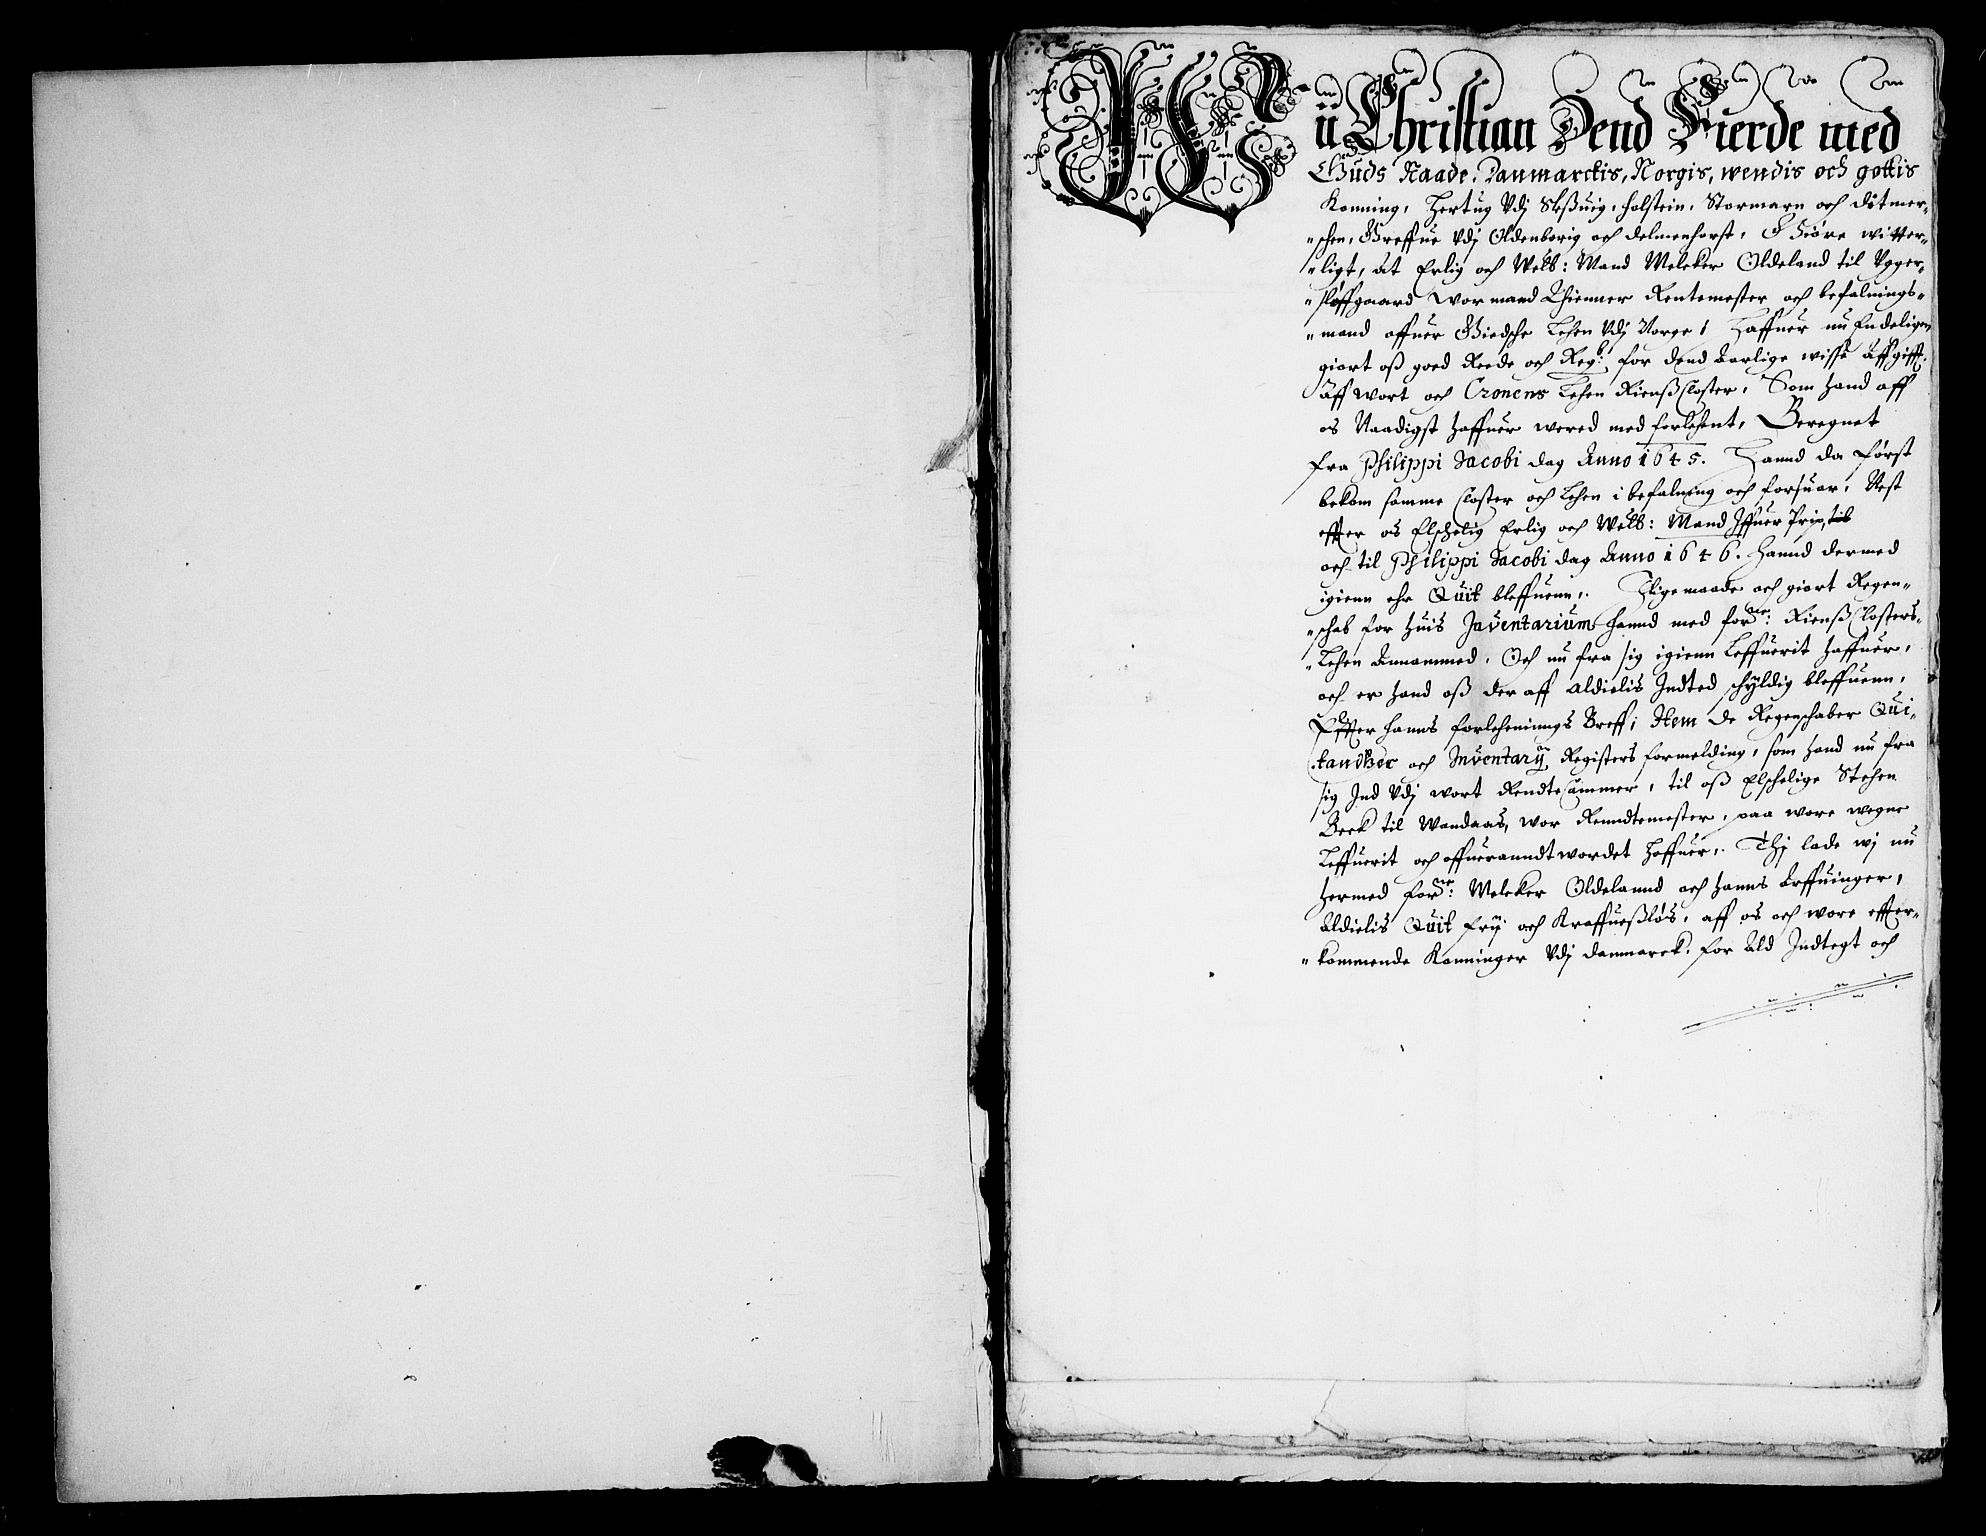 Wü Christian Dend Fierde med
Guds Naade, Danmarckis, Norgis, wendis och gottis
Konning, Hertug Vdj Slßuig, Holstein, Stormarn och ditmer-
"schen, Greffue Vdj Oldenborig och delmenhorst, Giøre witter-
"ligt, at Erlig och Welb: Mand Melcker Oldeland til Vgger-
"sløffgaard wor mand Thienner Rentemester och befalnings-
"mand offuer Giedsche Lehen Vdj Norge, Haffuer nu Endeligen
giort oß goed Rede och Regb: for dend Aarlige wisse Affgifft.
Aff wort och Cronens Lehen Rienßcloster, Som hand aff
os Naadigst haffuer wered med forlehent, Beregnet
fra Philippi Jacobi dag Anno 1645. Hannd da først
bekom samme Closter och Lehen i befalning och forsuar, Nest
effter os Elschelig Erlig och Welb: Mand Iffuer Prip, til
och til Philippi Jacobi dag Anno 1646. hannd dermed
igienn ehr Quit bleffuenn. Jligemaade och giort Regen-
"schab for huis Inventarium hannd med forne: Rienß Closters
"Lehen Annammed, Och nu fra sig igienn Leffuerit haffuer,
och er hand oß der aff aldielis Indted schyldig bleffuenn,
Effter hanns forlehenings Breff, Item de Regenschaber Qui-
tandtzer och Inventarij Registers formelding, som hand nu fra
sig Ind Vdj wort Rendtecammer, til oß Elschelige Stehen
Beck til Wandaas, wor Renndtemester, paa wore wegne
Leffuerit och offueranndtwordet haffuer. Thj lade wj nu
hermed forne: Melcker Oldelannd och hanns Arffuinger,
Aldielis Quit frij och Kraffuesløs, aff os och wore effter-
"kommende Konninger Vdj danmarck, for Ald Indtegt och